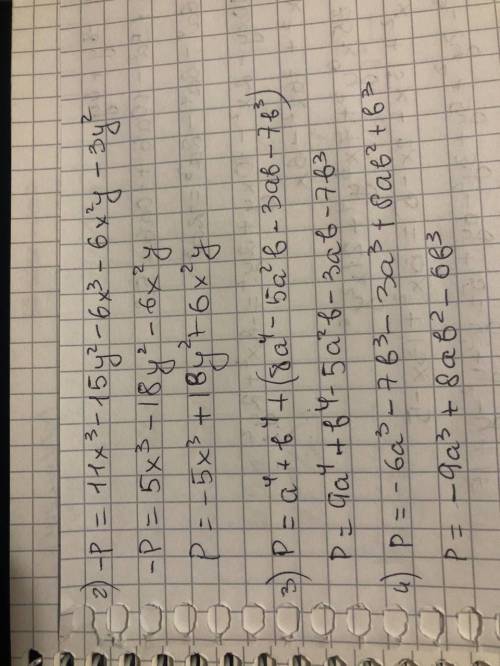 2) -P = 11x³ - 15y² - 6x³ - 6x²y - 3y²
-P = 5x³ - 18y² - 6x²y
P = -5x³ + 18y² + 6x²y
3) P = a⁴ + b⁴ + (8a⁴ - 5a²b - 3ab - 7b³)
P = 9a⁴ + b⁴ - 5a²b - 3ab - 7b³
4) P = -6a³ - 7b³ - 3a³ + 8ab² + b³
P = -9a³ + 8ab² - 6b³